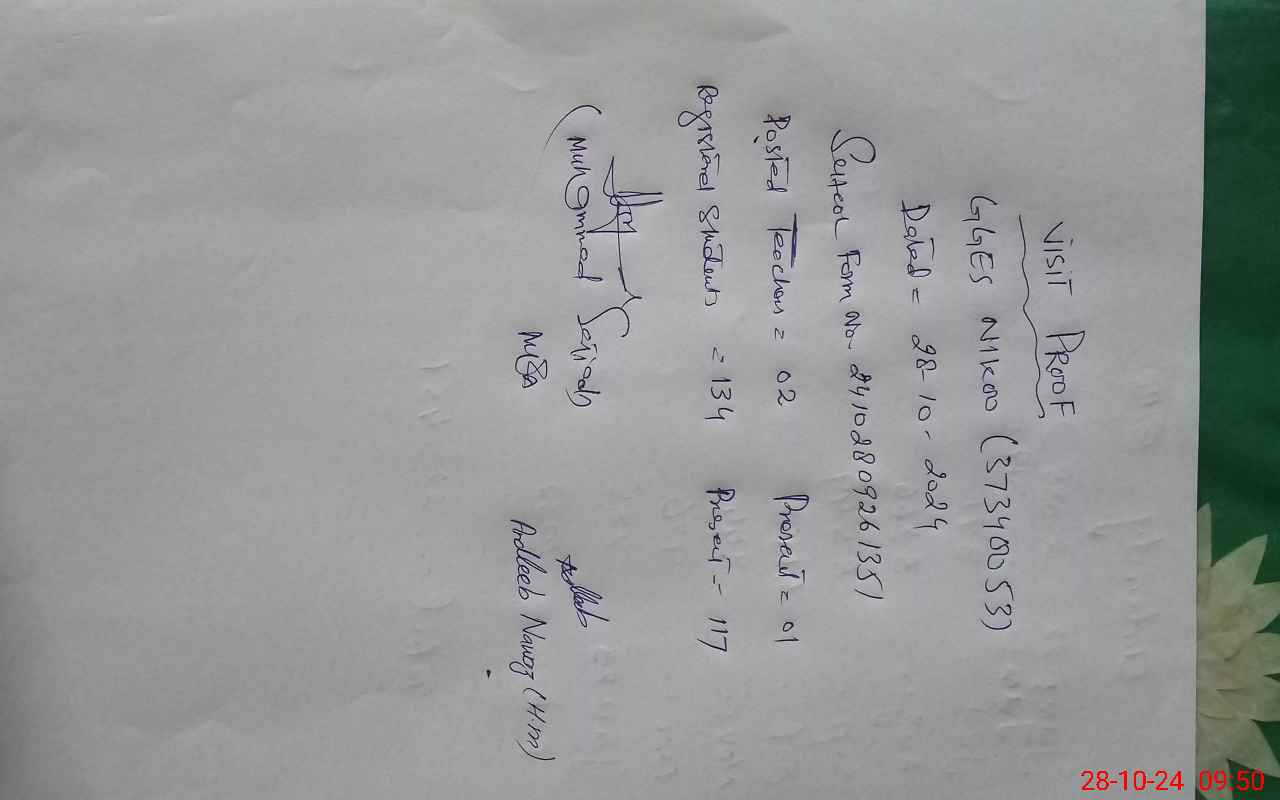 VISIT PROOF
GGES NIKOO (37340053)
Dated = 28-10-2024
School Form No. 24102809261351
Posted Teachers = 02 Present = 01
Registered Students = 134 Present = 117
(Muhammad
MEA
Ardleeb Nawaz (H.m)
28-10-24 09:50